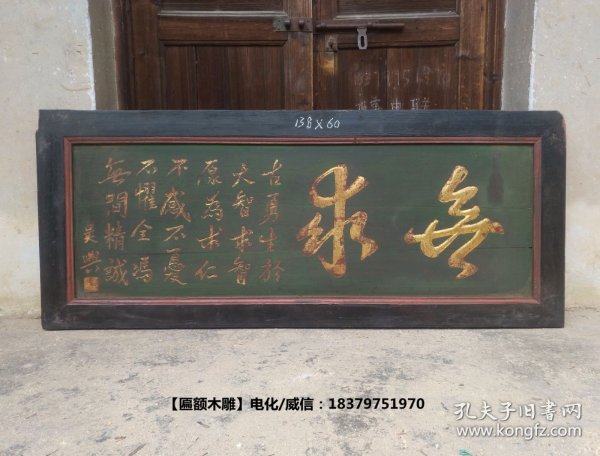 138X60
無求
古勇生於
大智求智
原為求仁
不惑不憂
不懼全馮
無間精誠
吴興
【匾额木雕】电化/威信：18379751970
孔夫子旧书网
www.kongfz.com